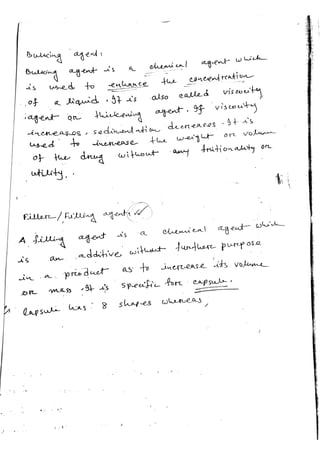 Bulking agent:
Bulking agent is a chemical agent which
is used to enhance the concentration
of a liquid. It is also called viscocity
agent or thickening agent. If viscocity
increases, sedimentation decreases. It is
used to increase the weight or volume
of the drug without any functionality or
utility.
Fillers/Filling agent:
A filling agent is a chemical agent which
is an additive without further purpose
in a product as to increase its volume
or mass. It is specific for capsule.
Capsule has 8 shapes whereas,